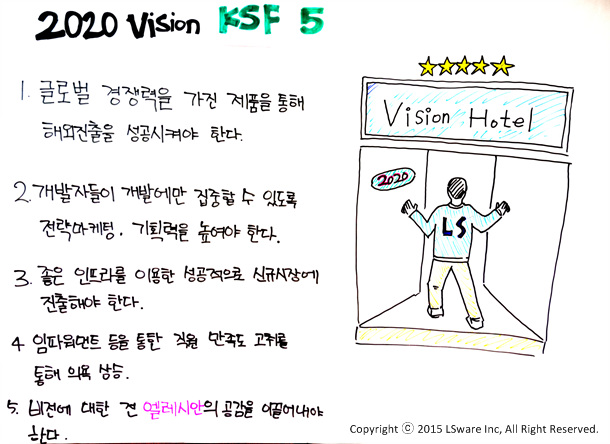 2020 Vision KSF 5
1. 글로벌 경쟁력을 가진 제품을 통해
해외진출을 성공시켜야 한다.
2. 개발자들이 개발에만 집중할 수 있도록
전략마케팅, 기획력을 높여야 한다.
3. 좋은 인프라를 이용한 성공적으로 신규시장에
진출해야 한다.
4 임파워먼트 등을 통한 직원 만족도 고취를
통해 의욕 상승.
5. 비전에 대한 전 엘레시안의 공감을 이끌어내야
한다.
Vision Hotel
2020
LS
Copyright ⓒ 2015 LSware Inc, All Right Reserved.